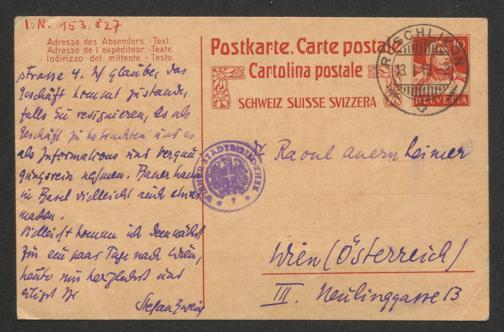 I.N. 153.827
Adresse des Absenders. - Text.
Adresse de l'expéditeur. - Texte.
Indirizzo del mittente. - Testo.
Postkarte. Carte postale
Cartolina postale
SCHWEIZ SUISSE SVIZZERA
RÜSCHLIKON
HELVETIA
strasse 4. Ich glaube, das
Geschäft kommt zustande,
falls Sie resignieren, es als
Geschäft zu betrachten und es
als Informations und
nehmen.
in Basel vielleicht auch etwas
machen.
Vielleicht komme ich demnächst
für ein paar Tage nach Wien,
heute nur herzlichst und
eiligst Ihr
Stefan Zweig
WIENER STADTBIBLIOTHEK
Raoul Auernheimer
Wien (Österreich)
III. Neulinggasse 13